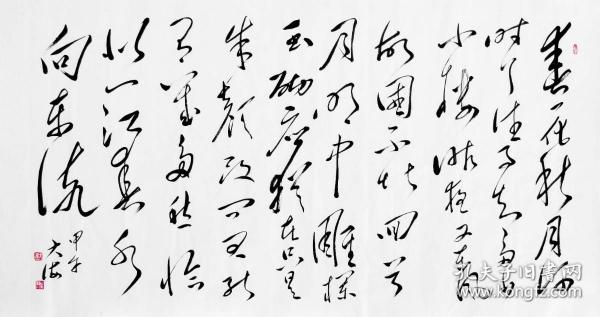 春花秋月何
时了往事知多少
小楼昨夜又东风
故国不堪回首
月明中雕栏
玉砌应犹在只是
朱颜改问君能
有几多愁恰
似一江春水
向东流
甲午
大海
孔夫子旧书网